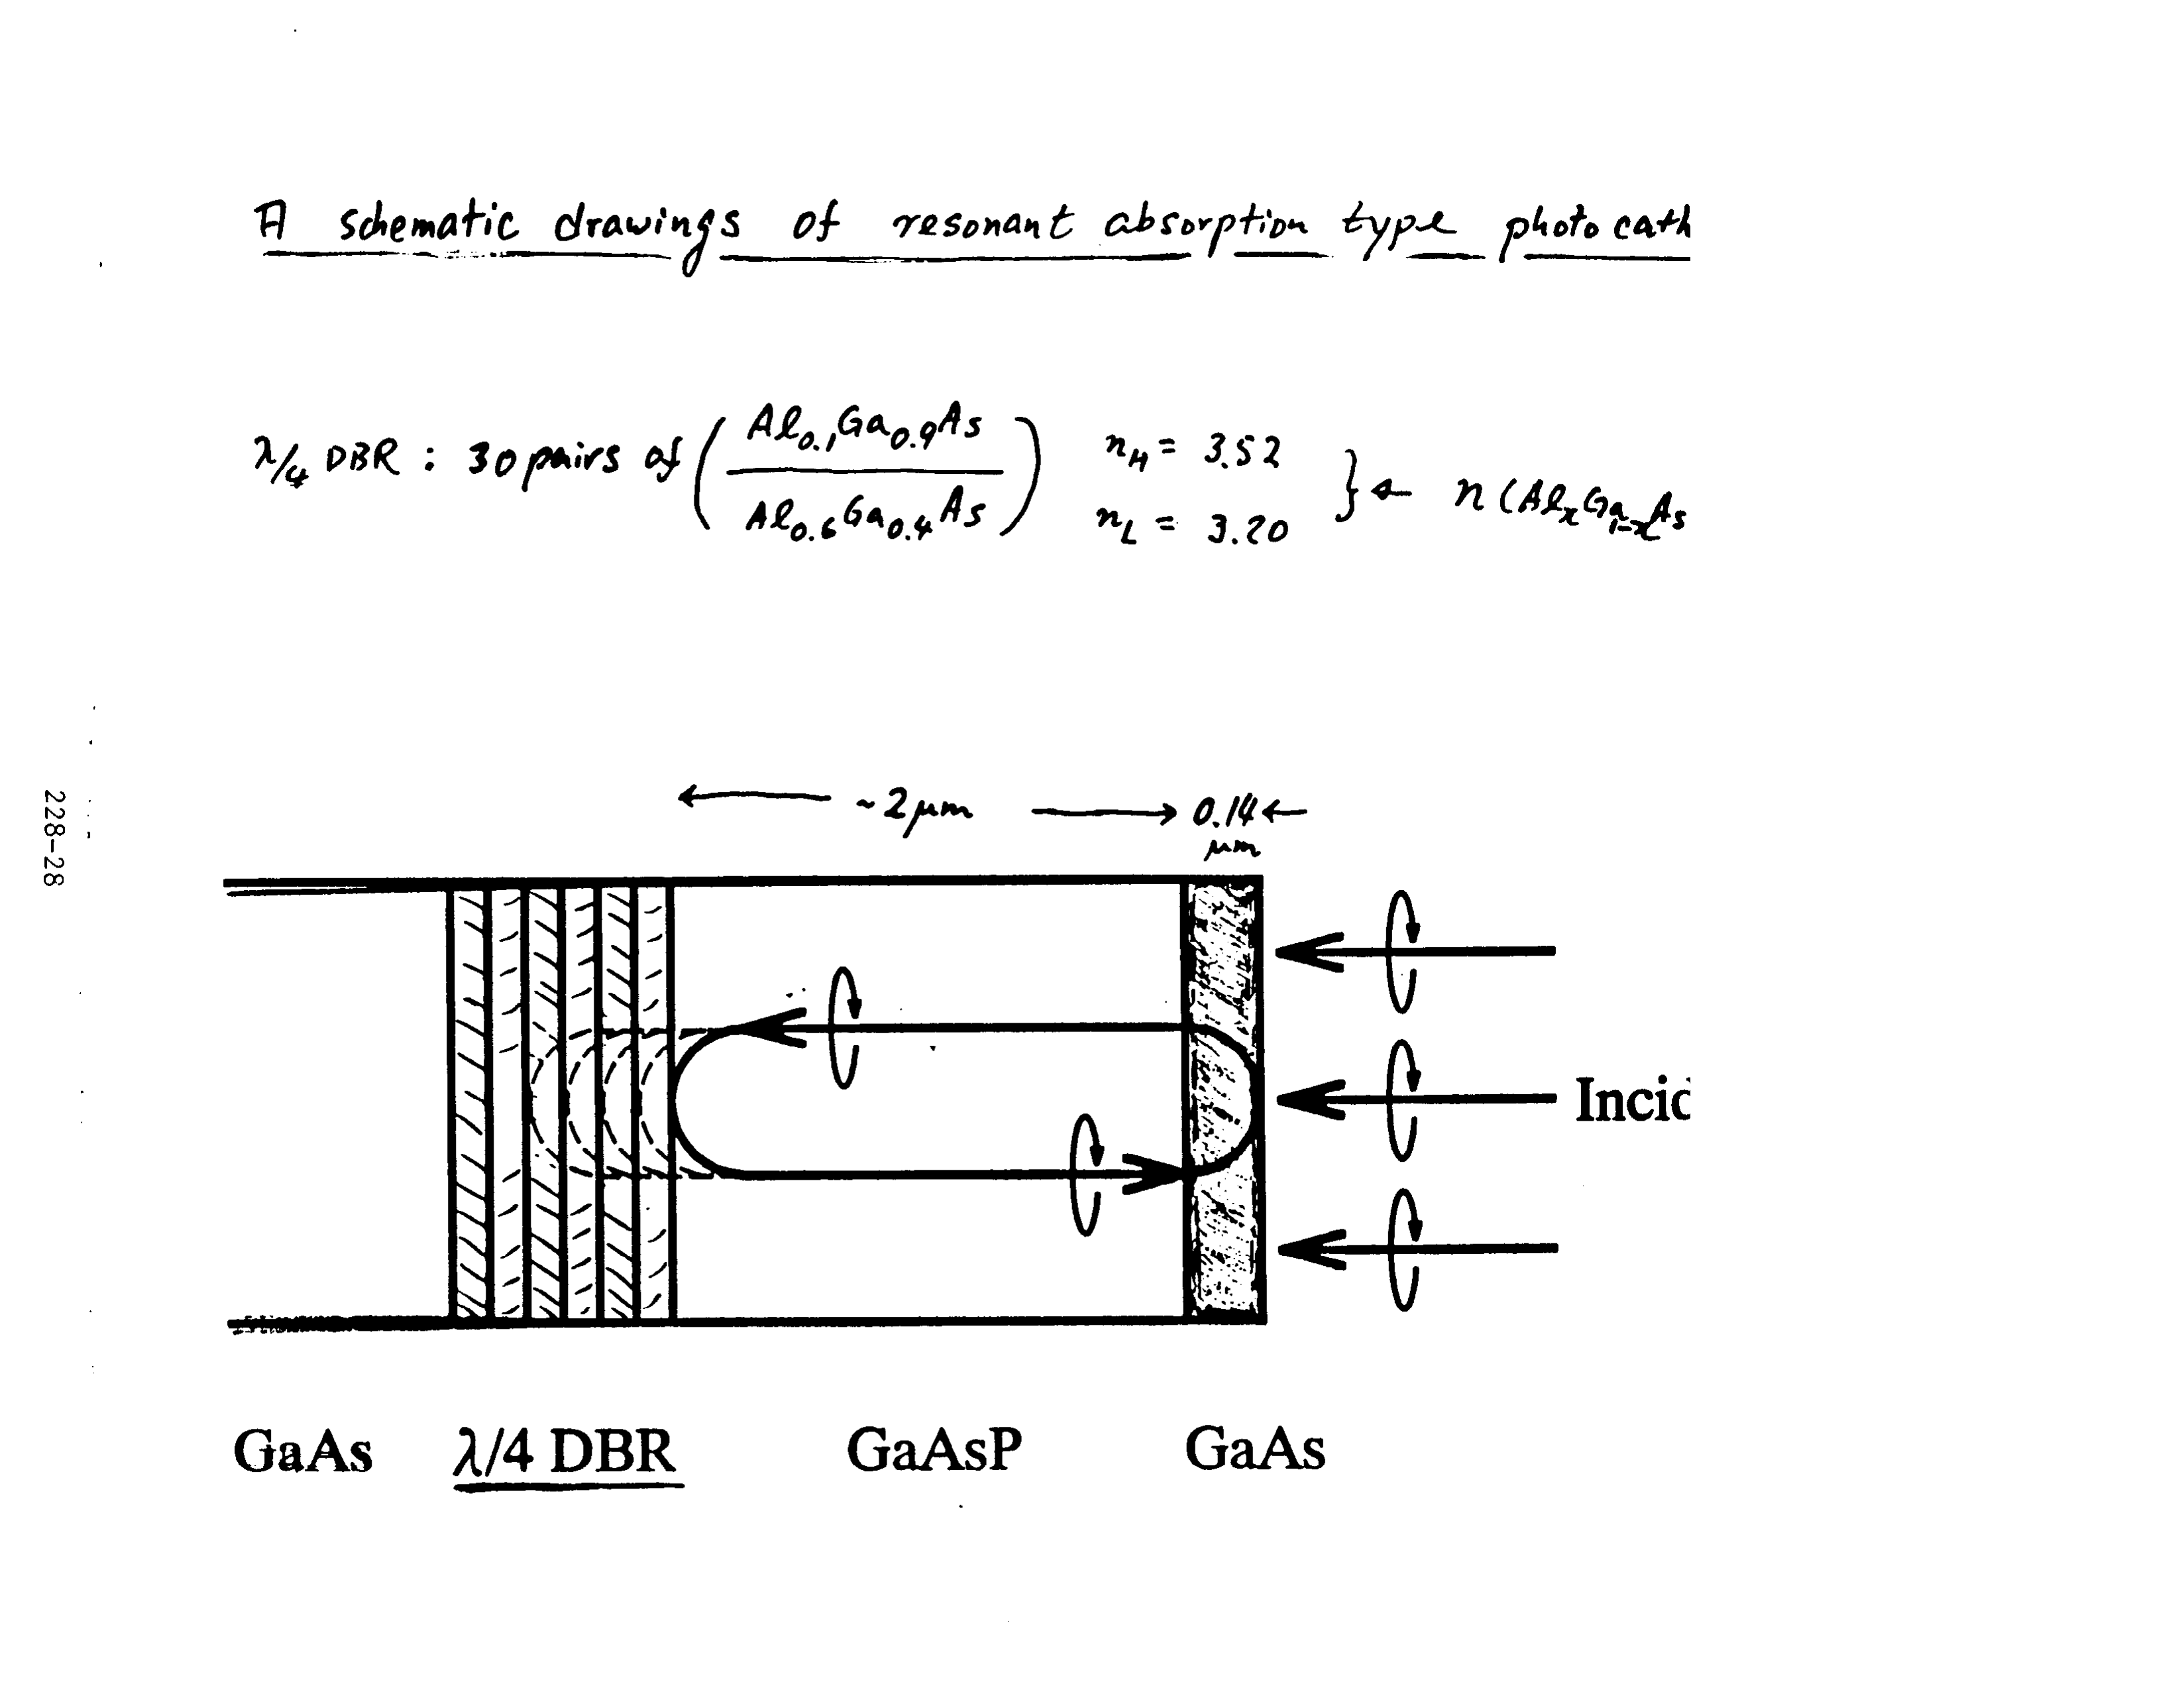 A schematic drawings of resonant absorption type photo cath
λ/4 DBR : 30 pairs of ( Al0.1Ga0.9As / Al0.6Ga0.4As ) nH = 3.52 } ← n (AlxGa1-xAs
nL = 3.20
← ~2μm → 0.14 ←
μm
228-28
Incid
GaAs λ/4 DBR GaAsP GaAs